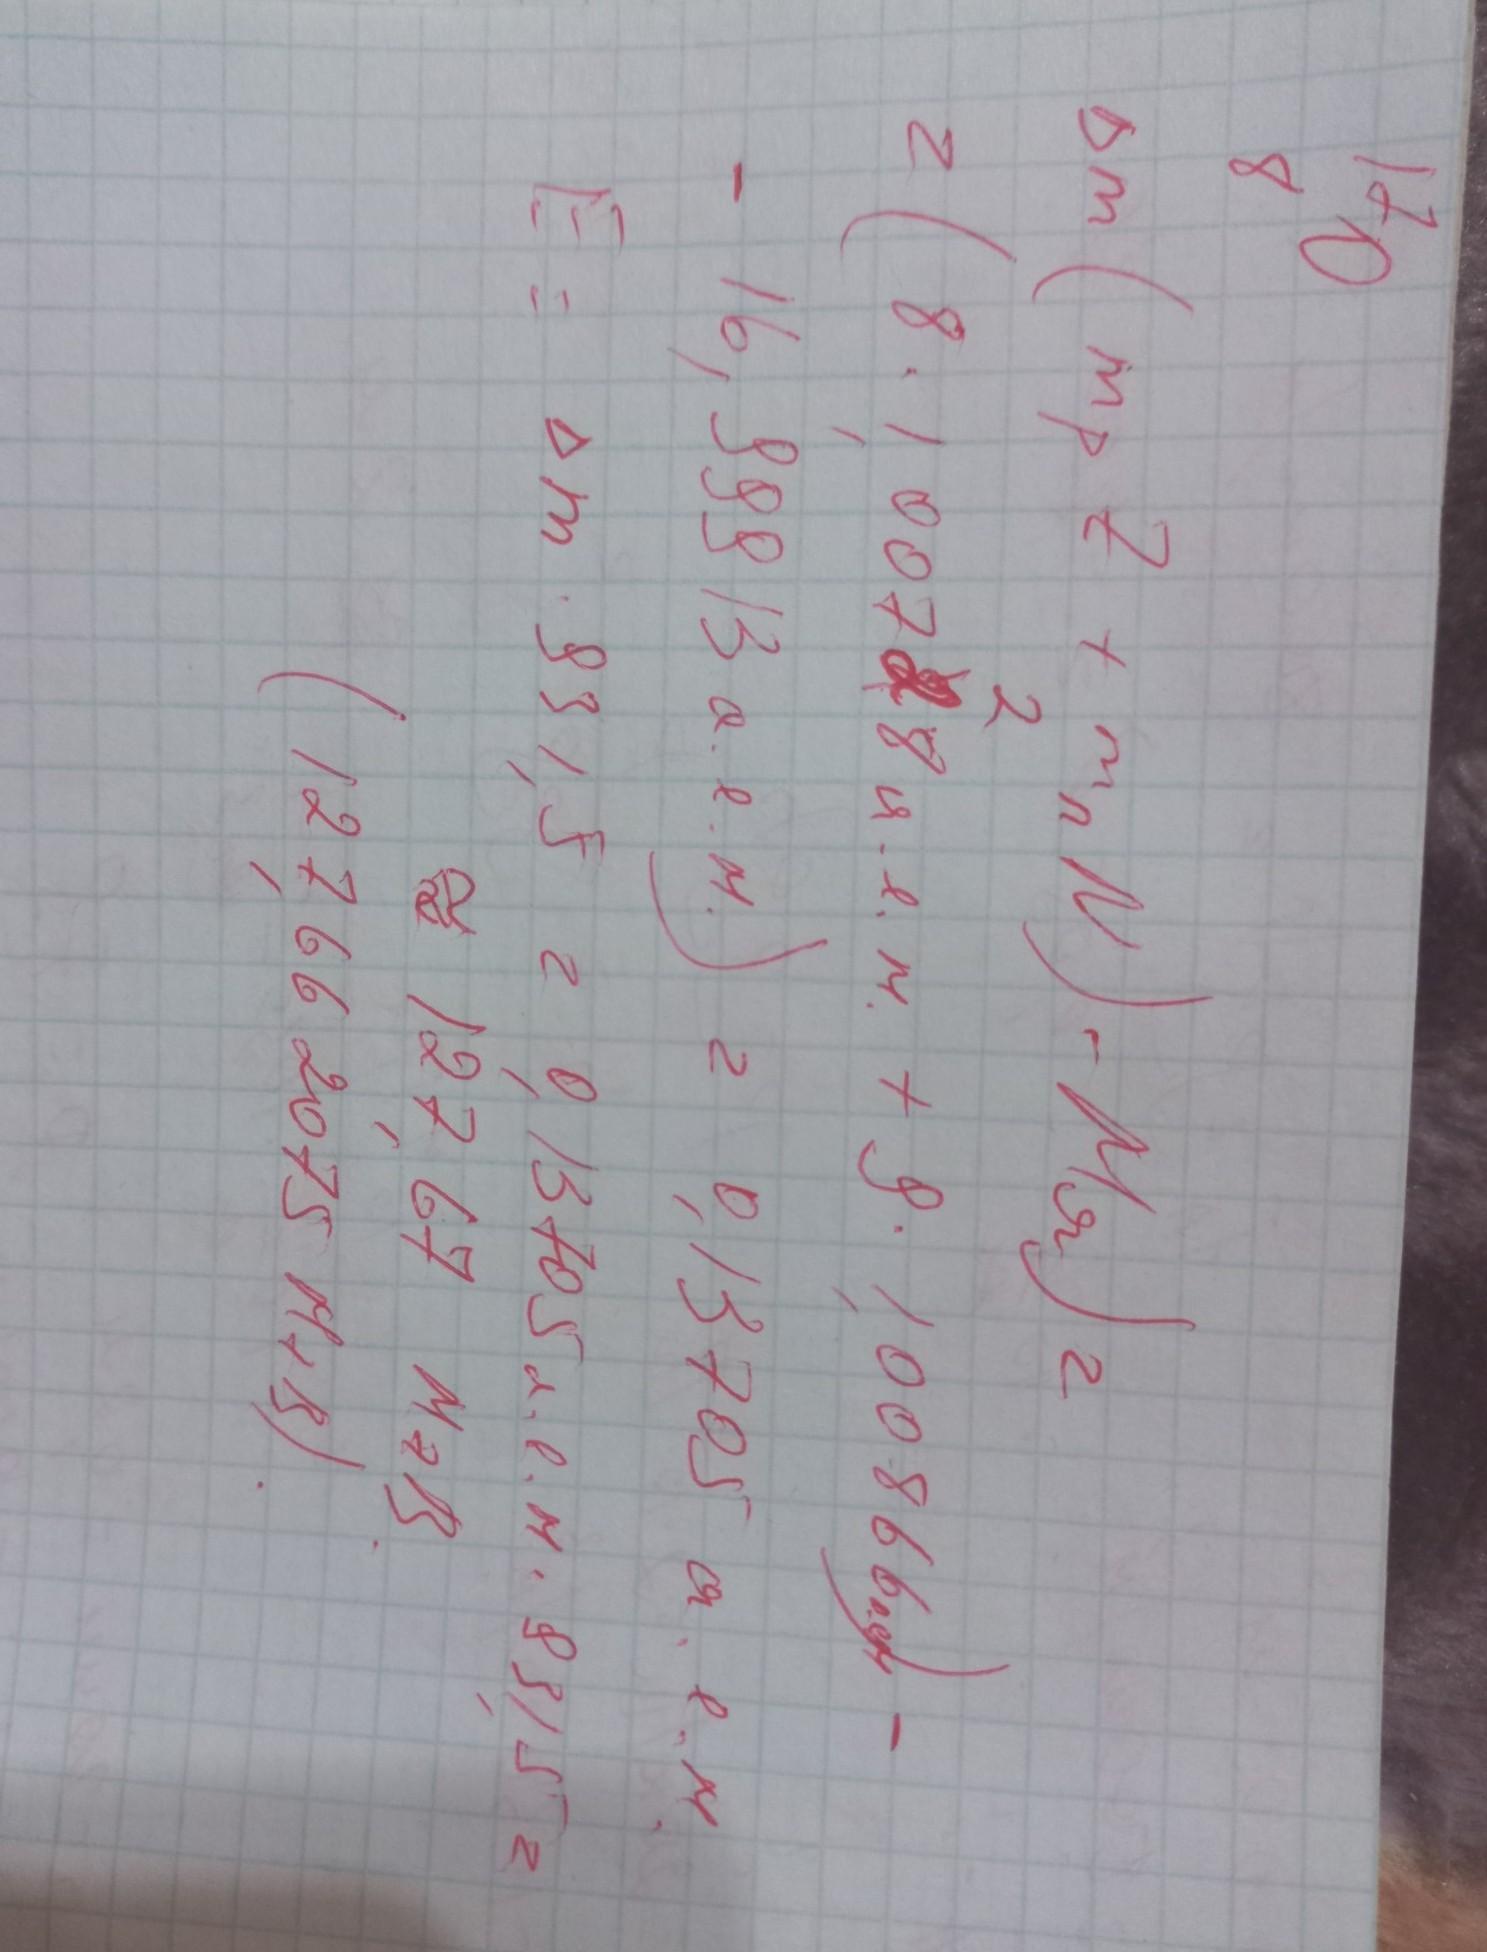 17 O
8
Δm(mp Z + mn N) - Mя) =
= (8 · 1,00728 а.е.м. + 9 · 1,00866 а.е.м) -
- 16,99913 а.е.м.) = 0,13705 а.е.м.
E = Δm · 931,5 = 0,13705 а.е.м. · 931,5 =
≈ 127,67 МэВ.
(127,662075 МэВ).